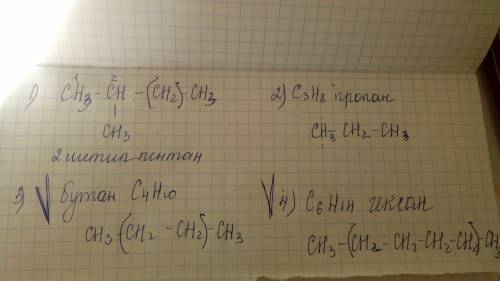 1) CH3 - CH - (CH2) - CH3
1 2
CH3
2 метил пентан
2) C3H8 пропан
CH3 CH2 - CH3
3) бутан C4H10
CH3 - (CH2 - CH2) - CH3
4) C6H14 гексан
CH3 - (CH2 - CH2 - CH2 - CH2) - CH3